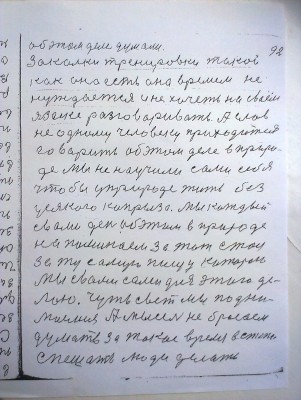 98
об этом деле думали.
Закалки тренировки такой
как она есть она времем не
нуждается и не хочеть на своём
языке разговаривать А слов
не одному человеку приходится
говорить об этом деле в приро-
де Мы не научили сами себя
чтобы у природе жить без
усякого каприза. Мы каждый
свой ден об этом в природе
напоминаем За тот стол
За ту самую пищу которою
Мы свами сами для этого де-
лаю. Чуть свет мы подни-
маимся А мысел не бросаем
думать За такое время
спешать люди делать